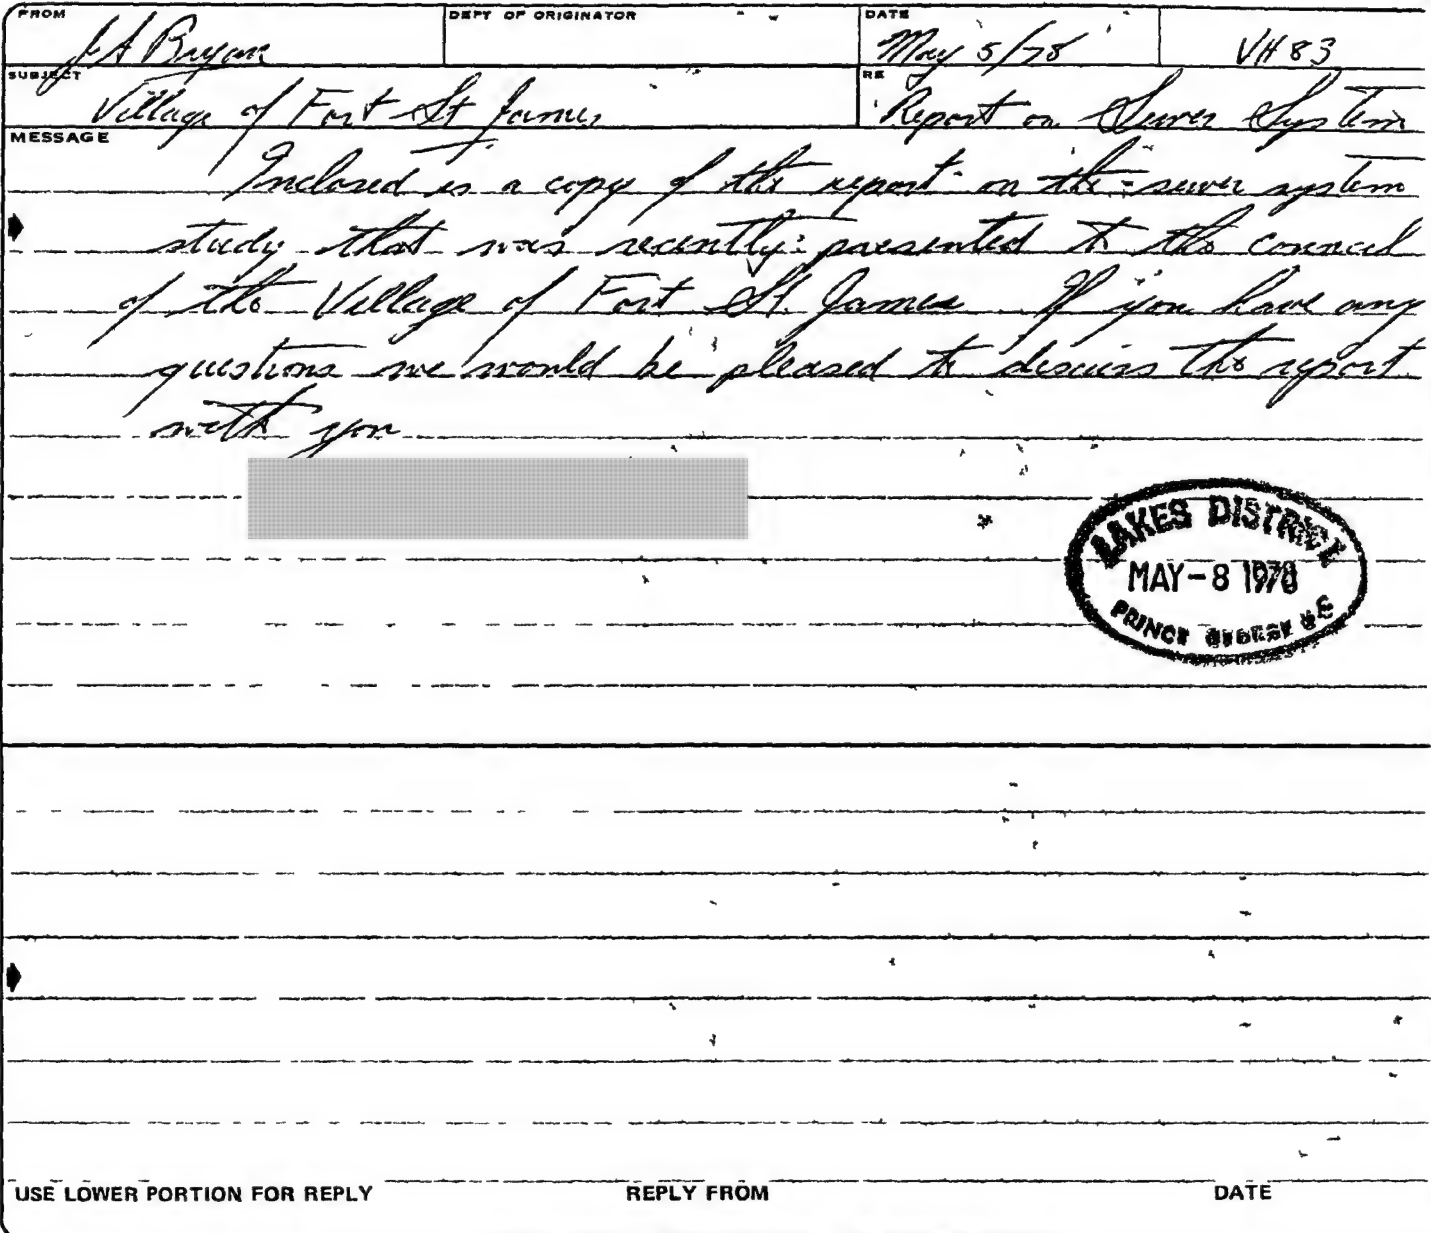 FROM DEPT OF ORIGINATOR DATE
J A Bryan May 5/78 VH 83
SUBJECT RE
Village of Fort St James Report on Sewer System
MESSAGE
Inclosed is a copy of the report on the sewer system
study that was recently presented to the council
of the Village of Fort St. James If you have any
questions we would be pleased to discuss the report
with you
LAKES DISTRICT
MAY - 8 1978
PRINCE GEORGE B C
USE LOWER PORTION FOR REPLY REPLY FROM DATE